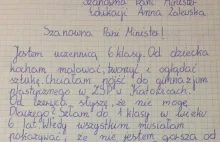 Szanowna Pani Minister
Edukacji Anna Zalewska
Szanowna Pani Minister!
Jestem uczennicą 6 klasy. Od dziecka
kocham malować, tworzyć i oglądać
sztukę. Chciałam pójść do gimnazjum
plastycznego w ZSP w Katowicach!
Od słyszę, że nie mogę.
Dlaczego? Szłam do 1 klasy w wieku
6 lat. Wtedy wszystkim musiałam
pokazywać, że nie jestem gorsza od